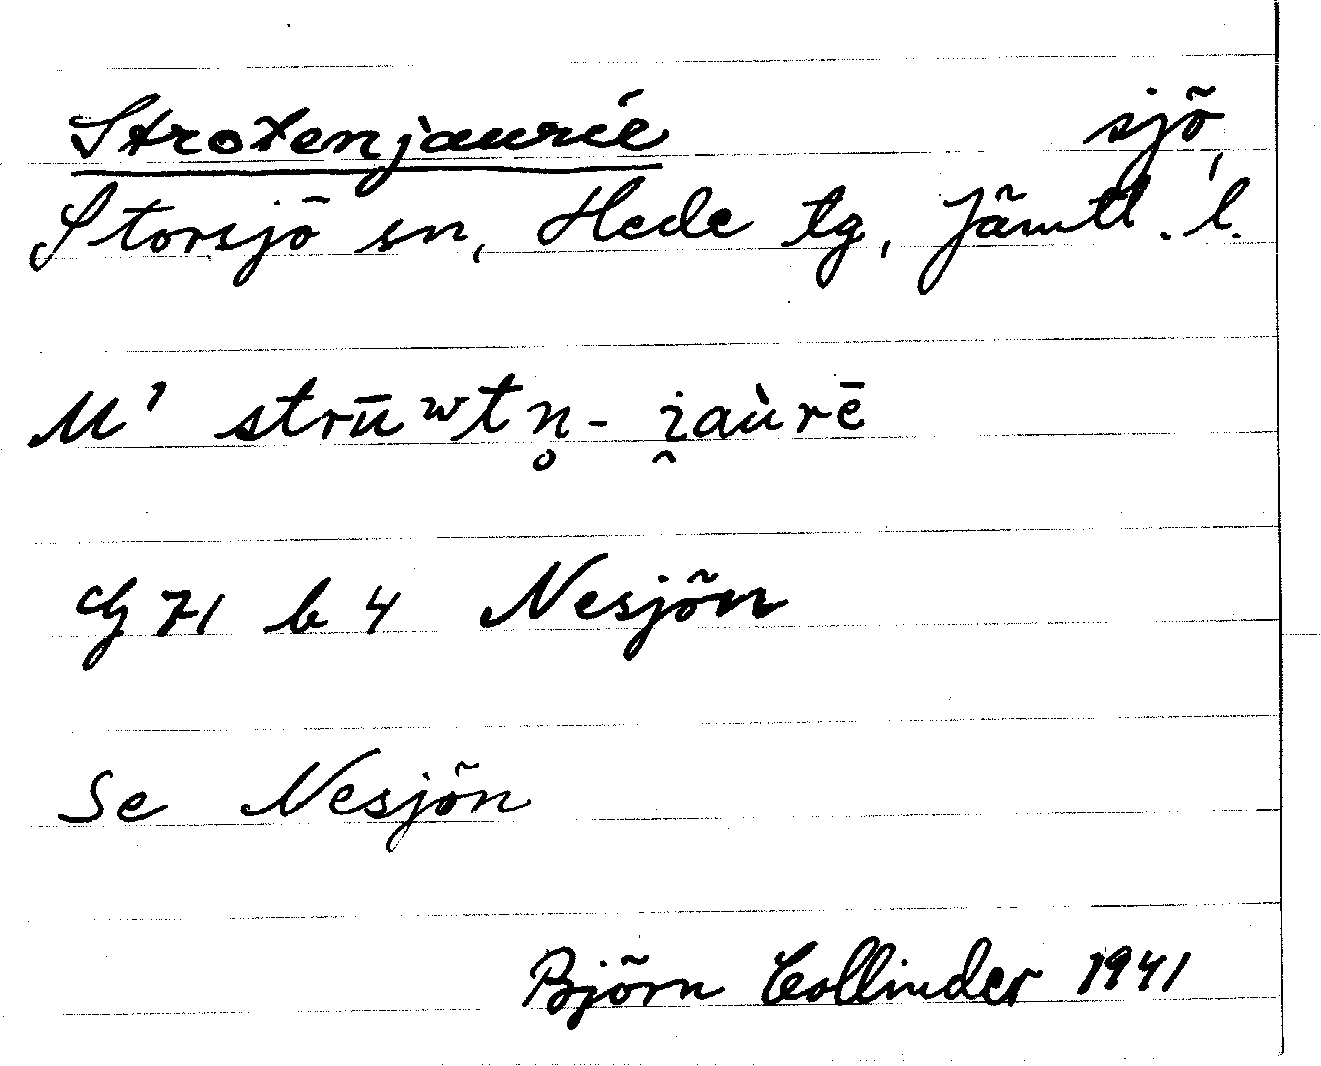 Strotenjaurée sjö,
Storsjö sn, Hede tg, Jämtl. l.
M¹ strūʷtn̥- i̯au̇rē
G 71 b 4 Nesjön
Se Nesjön
Björn Collinder 1941